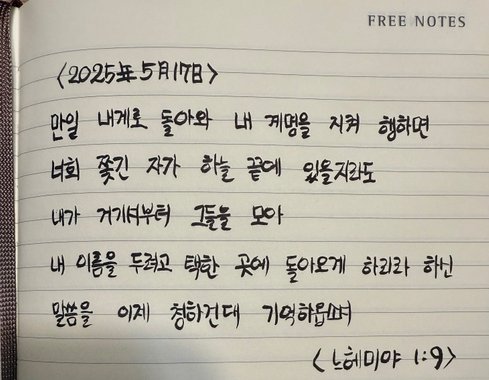 FREE NOTES
<2025年 5月17日>
만일 내게로 돌아와 내 계명을 지켜 행하면
너희 쫓긴 자가 하늘 끝에 있을지라도
내가 거기서부터 그들을 모아
내 이름을 두려고 택한 곳에 돌아오게 하리라 하신
말씀을 이제 청하건대 기억하옵소서
(느헤미야 1:9)